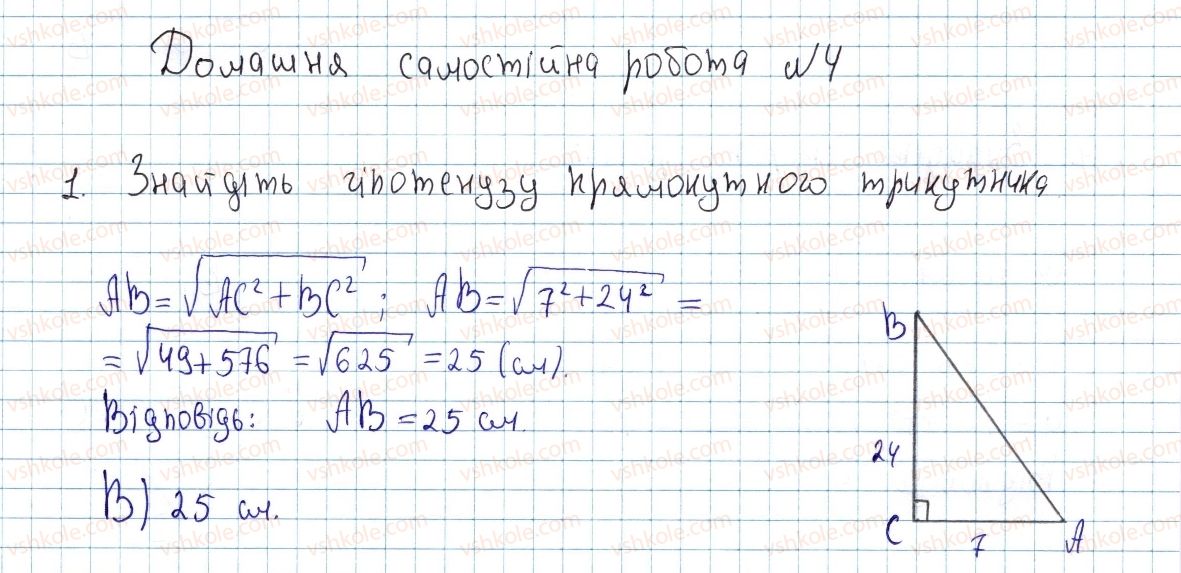 Домашня самостійна робота №4
1. Знайдіть гіпотенузу прямокутного трикутника
AB = √AC² + BC² ; AB = √7² + 24² =
= √49 + 576 = √625 = 25 (см).
Відповідь: AB = 25 см.
В) 25 см.
B
24
C
7
A
vshkole.com